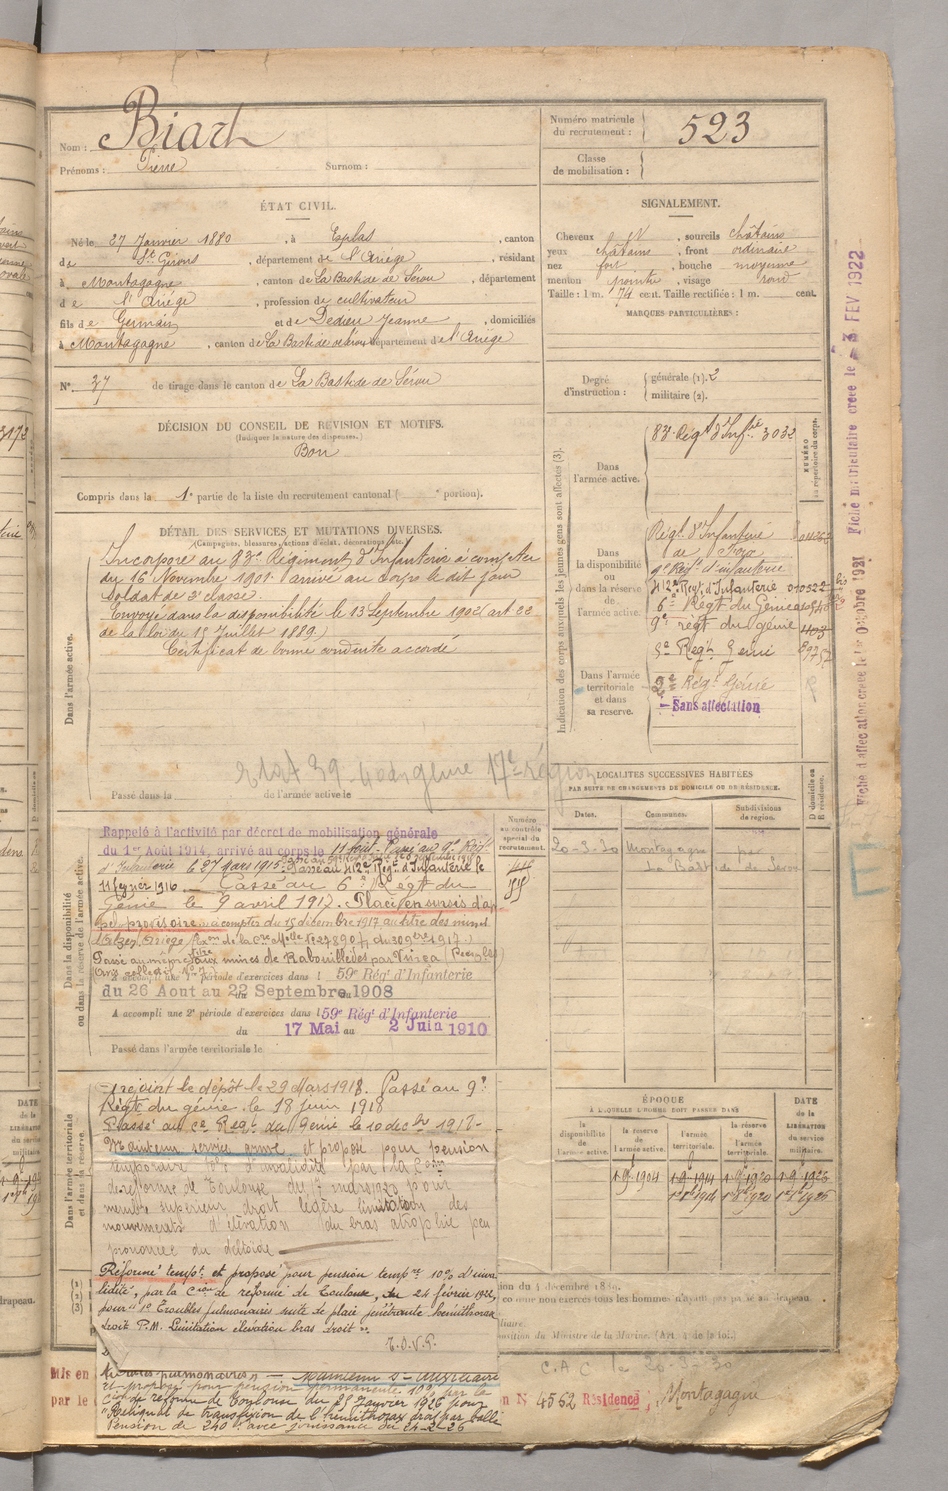 Nom : Biart
Prénoms : Pierre Surnom :
Numéro matricule du recrutement : 523
Classe de mobilisation :
ÉTAT CIVIL.
Né le 27 Janvier 1880, à Esplas, canton
de St Girons, département de l'Ariège, résidant
à Montagagne, canton de La Bastide de Sérou, département
de l'Ariège, profession de cultivateur
fils de Germain et de Dedieu Jeanne, domiciliés
à Montagagne, canton de La Bastide de Sérou département de l'Ariège
N° 37 de tirage dans le canton de La Bastide de Sérou
SIGNALEMENT.
Cheveux, sourcils châtains
yeux châtains, front ordinaire
nez fort, bouche moyenne
menton pointu, visage rond
Taille : 1 m. 74 cent. Taille rectifiée : 1 m. cent.
MARQUES PARTICULIÈRES :
Degré d'instruction : générale (1). 2
militaire (2).
DÉCISION DU CONSEIL DE RÉVISION ET MOTIFS.
(Indiquer la nature des dispenses.)
Bon
Compris dans la 1e partie de la liste du recrutement cantonal ( portion).
DÉTAIL DES SERVICES ET MUTATIONS DIVERSES.
(Campagnes, blessures, actions d'éclat, décorations, etc.
Dans l'armée active.
Incorporé au 83e Régiment d'Infanterie à compter
du 16 Novembre 1901. arrivé au corps le dit jour
Soldat de 2e classe.
Envoyé dans la disponibilité le 13 Septembre 1902 (art
de la loi du 15 Juillet 1889.)
Certificat de bonne conduite accordé
génie 17e région
Passé dans la de l'armée active le
Indication des corps auxquels les jeunes gens sont affectés (3).
NUMÉRO au répertoire du corps.
Dans l'armée active.
83e Régt d'Infrie 3032
Dans la disponibilité ou dans la réserve de l'armée active.
Régt d'Infanterie
de Foix
9e Régt d'infanterie
412e Regt d'Infanterie
6e Regt du Génie
9e regt du génie
Regt Genie
Dans l'armée territoriale et dans sa réserve.
2e Régt Génie
Sans affectation
Fiche d'affectation créée le 1er Octobre 1921 Fiche matriculaire créée le 3 FEV 1922
LOCALITÉS SUCCESSIVES HABITÉES
PAR SUITE DE CHANGEMENTS DE DOMICILE OU DE RÉSIDENCE.
Dates. Communes. Subdivisions de région. D domicile ou R résidence.
20-3-30 Montagagne par
La Bastide de Serou
Dans la disponibilité ou dans la réserve de l'armée active.
Numéro au contrôle spécial du recrutement.
Rappelé à l'activité par décret de mobilisation générale
du 1er Août 1914, arrivé au corps le 11 Août. Passé au 9e Regt
d'Infanterie le 27 mars 1915. Passé au 412e Regt d'Infanterie le
11 février 1916. Passé au 6e Regt du
Génie le 9 avril 1917. Placé en sursis d'ap
pel provisoire à compter du 15 décembre 1917 au titre des mines
Passé au même titre aux mines de Rabouillèdes par Vivïès
période d'exercices dans l 59e Régt d'Infanterie
du 26 Aout au 22 Septembre 1908
A accompli une 2e période d'exercices dans l 59e Régt d'Infanterie
du 17 Mai au 2 Juin 1910
Passé dans l'armée territoriale le
Dans l'armée territoriale et dans sa réserve.
rejoint le dépôt le 29 Mars 1918. Passé au 9e
Régt du génie le 18 juin 1918
Passé au 2e Regt du Genie le 10 dec
Maintenu service armé et proposé pour pension
temporaire 10% d'invalidité par la Com
de reforme de Toulouse du 17 mars 1920 pour
membre superieur droit légère limitation des
mouvements d'élévation du bras atrophie peu
prononcée du deltoïde
Réformé tempt et proposé pour pension tempre 10% d'inva
lidité, par la Cion de réforme de Toulouse, du 24 février 1922,
pour "1° Troubles pulmonaires suite de plaie pénétrante hemithorax
droit P.M. Limitation élévation bras droit".
Maintenu s. auxiliaire
et proposé pour pension permanente 10% par la
Cion de réforme de Toulouse du 25 Janvier 1926 pour
"Reliquat de transfixion de l'hemithorax droit par balle
Pension de 240 f. avec jouissance du 24-2-26
ÉPOQUE
À LAQUELLE L'HOMME DOIT PASSER DANS
la disponibilité de l'armée active. la réserve de l'armée active. l'armée territoriale. la réserve de l'armée territoriale. DATE de la LIBÉRATION du service militaire.
1-9-1904 1-9-1914 1-9-1920 1-9-1926
C.A C le 20-3-30
N 4562 Résidence, Montagagne